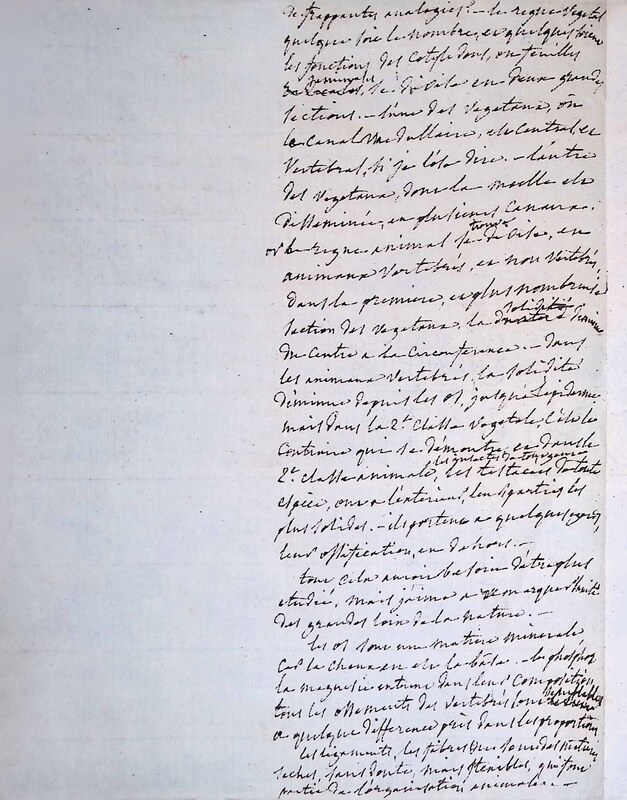 de frappantes analogies? - le regne vegetal
quelque soit le nombre, et quelques soient
les fonctions des cotyledons, ou feuilles
seminales se divise en deux grandes
sections. - l'une des vegetaux, où
le canal medullaire, est central, et
vertebral, si je l'ose dire. - l'autre
des vegetaux, dont la moelle est
disseminée, en plusieurs canaux.
or le regne animal se divise, en
animaux vertebrés, et non vertebrés,
dans la premiere, et plus nombreuse
section des vegetaux, la solidité diminue
du centre a la circonference. - dans
les animaux vertebrés, la solidité
diminue depuis les os, jusqu'a l'epiderme
mais dans la 2e classe vegetale, c'est le
contraire qui se demontre, et dans la
2e classe animale, les insectes les testacés de toute
espece, ont a l'exterieur, leurs parties les
plus solides. - ils portent a quelques egards,
leur ossification, en dehors. -
tout cela auroit besoin d'etre plus
etudié, mais j'aime a remarquer l'unité
des grandes loix de la nature. -
les os sont une matiere minerale
car la chaux en est la base. - le phosphore
la magnesie entrent dans leur composition,
tous les ossements des vertebrés sont semblables
a quelque difference près dans les proportions
les ligaments, les fibres sont des matieres
seches, sans doute, mais flexibles, qui font
partie de l'organisation animale. -